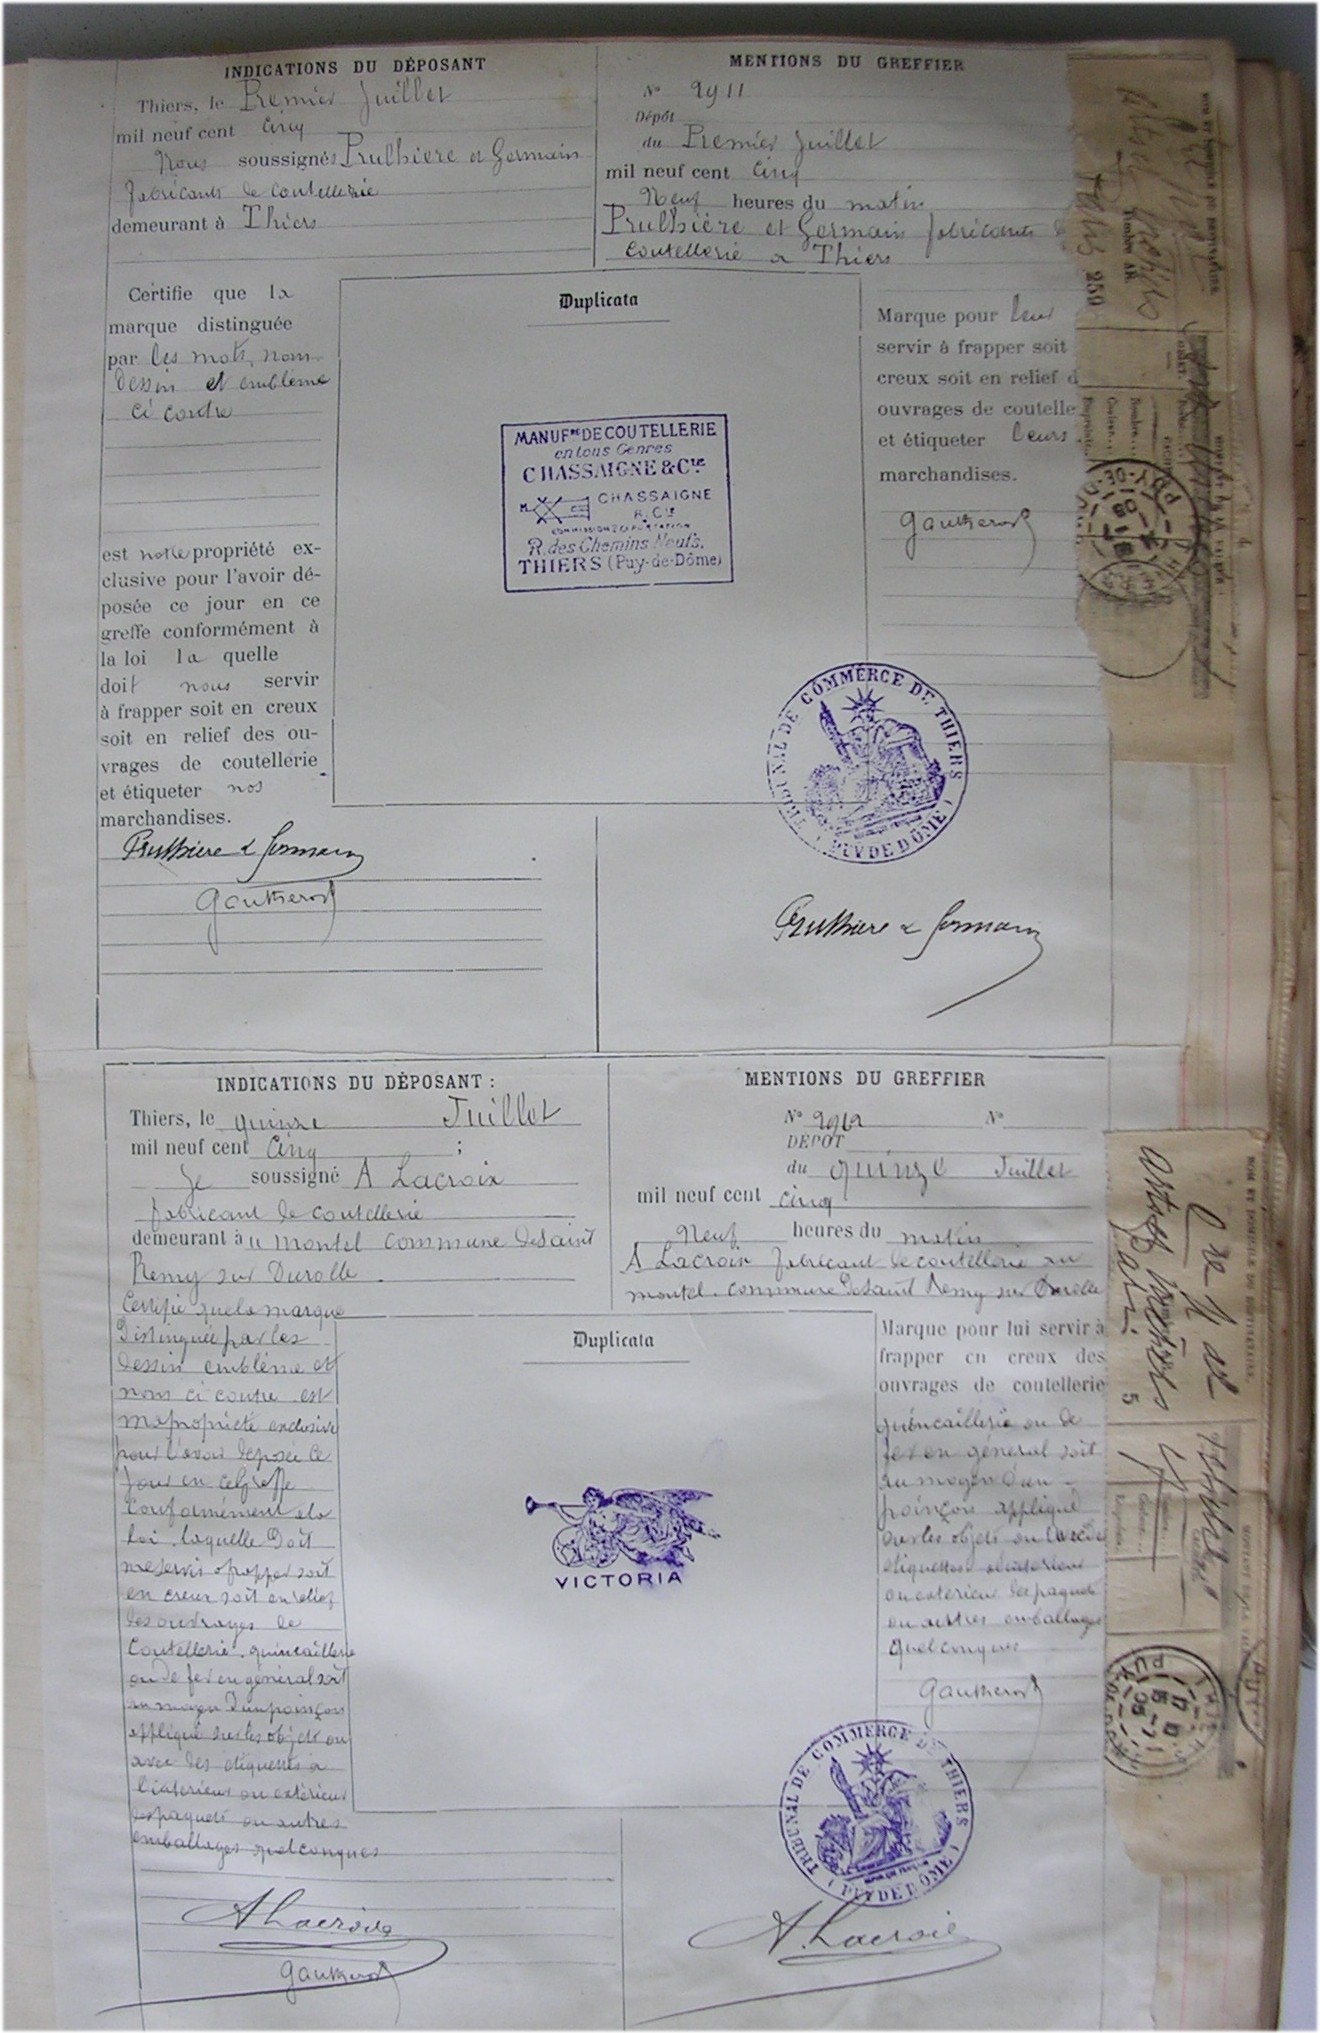 INDICATIONS DU DÉPOSANT
Thiers, le Premier Juillet
mil neuf cent cinq
Nous soussignés Prulhiere et Germain
fabricants de coutellerie
demeurant à Thiers
Certifie que la
marque distinguée
par les mots, nom
dessin et emblème
ci contre
est notre propriété ex-
clusive pour l'avoir dé-
posée ce jour en ce
greffe conformément à
la loi la quelle
doit nous servir
à frapper soit en creux
soit en relief des ou-
vrages de coutellerie
et étiqueter nos
marchandises.
Prulhiere & Germain
Gautheron
MENTIONS DU GREFFIER
N° 2911
Dépôt
du Premier Juillet
mil neuf cent cinq
Neuf heures du matin
Prulhière et Germain fabricants de
coutellerie a Thiers
Duplicata
MANUF^RE DE COUTELLERIE
en tous Genres
CHASSAIGNE & C^IE
CHASSAIGNE
R. C^IE
COMMISSION EXPORTATION
R. des Chemins Neufs,
THIERS (Puy-de-Dôme)
Marque pour leur
servir à frapper soit
creux soit en relief d
ouvrages de coutelle
et étiqueter leurs
marchandises.
Gautheron
TRIBUNAL DE COMMERCE DE THIERS
(PUY DE DÔME)
Prulhiere & Germain
INDICATIONS DU DÉPOSANT :
Thiers, le quinze Juillet
mil neuf cent cinq ;
Je soussigné A Lacroix
fabricant de coutellerie
demeurant à u montel commune de Saint
Remy sur Durolle
Certifie que la marque
Distinguée par les
dessin emblème et
nom ci contre est
ma propriété exclusive
pour l'avoir déposée ce
jour en ce Greffe
Conformément a la
loi. laquelle doit
me servir a frapper soit
en creux soit en relief
des ouvrages de
Coutellerie. quincaillerie
ou de fer en général soit
au moyen d'un poinçon
appliqué sur les objets ou
avec des étiquettes a
l'interieur ou extérieur
des paquets ou autres
emballages quelconques
A Lacroix
Gautheron
MENTIONS DU GREFFIER
N° 2912 N°
DÉPOT
du quinze Juillet
mil neuf cent cinq
Neuf heures du matin
A Lacroix fabricant de coutellerie au
montel. commune de Saint Remy sur Durolle
Duplicata
VICTORIA
Marque pour lui servir à
frapper en creux des
ouvrages de coutellerie
quincaillerie ou de
fer en général soit
au moyen d'un
poinçon appliqué
sur les objets ou avec des
etiquettes a l'interieur
ou exterieur des paquets
ou autres emballages
quelconques
Gautheron
TRIBUNAL DE COMMERCE DE THIERS
(PUY DE DÔME)
A. Lacroix
NOM ET DOMICILE DU DESTINATAIRE.
arts et métiers
Paris
5
THIERS
PUY-DE-DÔME